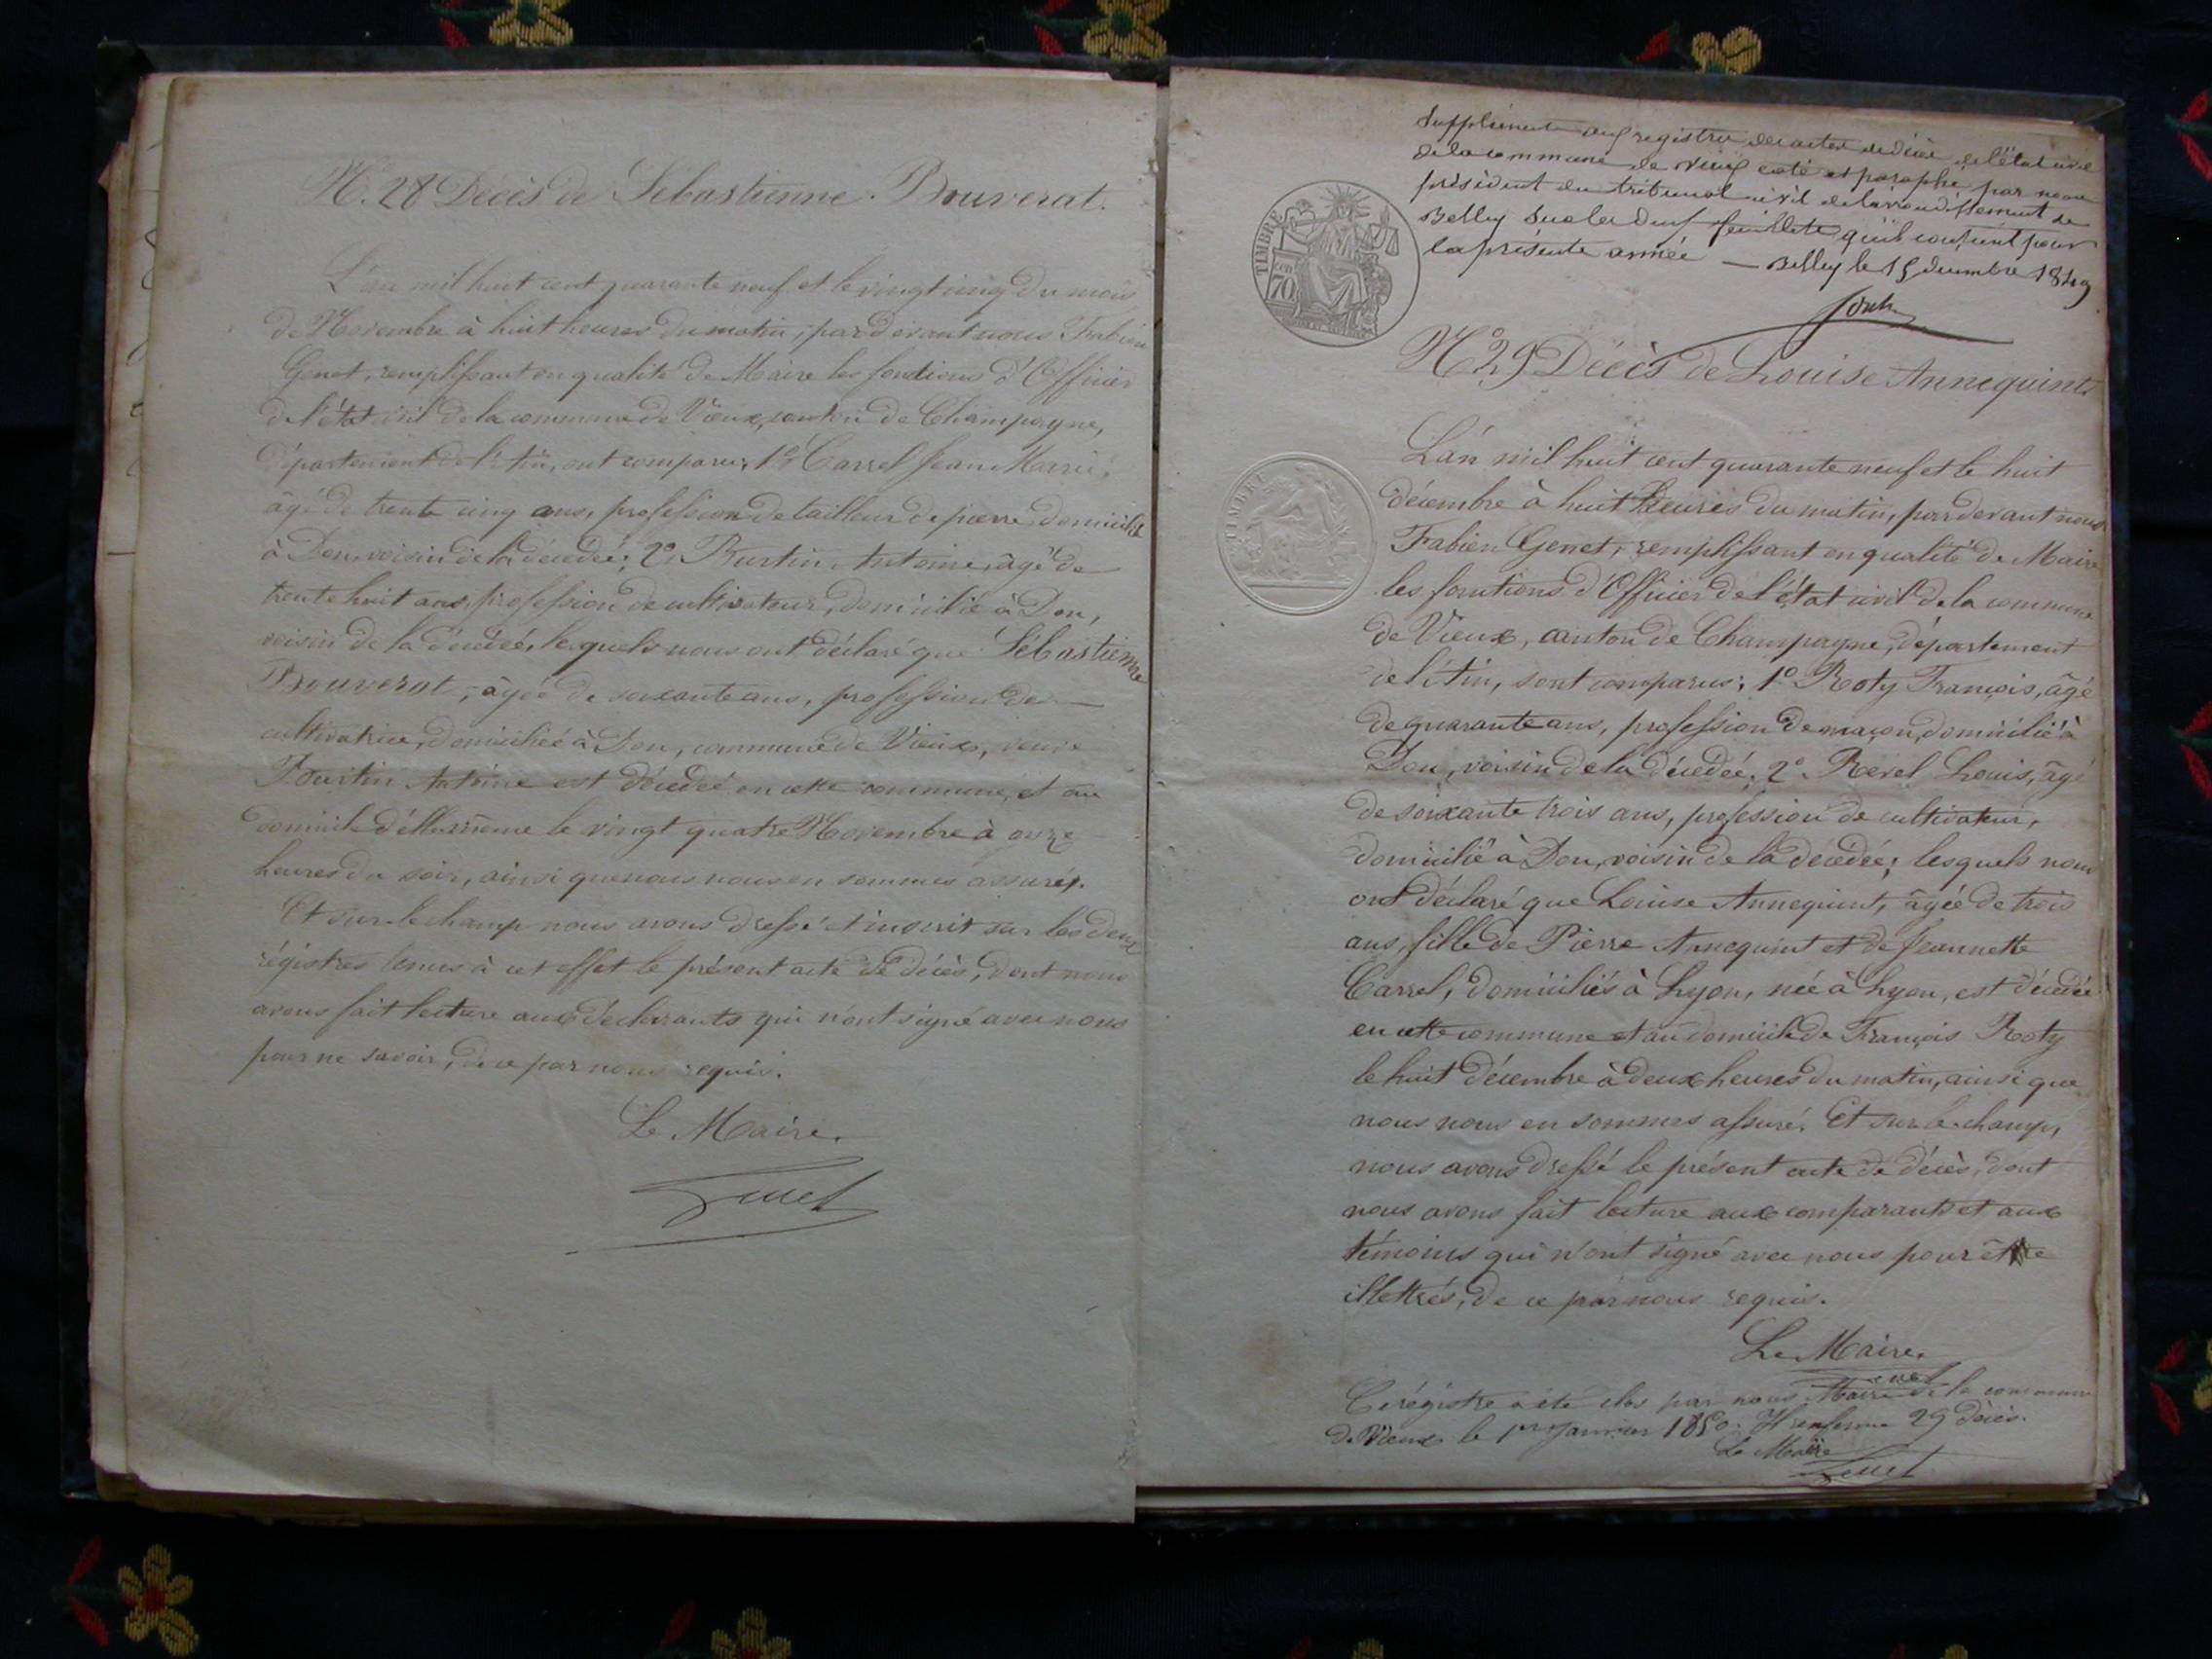 N°. 28 Décès de Sébastienne Bouverat.
L'an mil huit cent quarante neuf et le vingt cinq du mois
de Novembre à huit heures du matin, par devant nous Fabien
Genet, remplissant en qualité de Maire les fonctions d'Officier
de l'état civil de la commune de Vieux, canton de Champagne,
département de l'Ain, ont comparu, 1° Carrel Jean Marrie,
âgé de trente cinq ans, profession de tailleur de pierre, domicilié
à Don, voisin de la décédée; 2° Burtin Antoine, âgé de
trente huit ans, profession de cultivateur, domicilié à Don,
voisin de la décédée, lesquels nous ont déclaré que Sébastienne
Bouverat, âgée de soixante ans, profession de
cultivatrice, domiciliée à Don, commune de Vieux, veuve
Burtin Antoine est décédée en cette commune, et au
domicile d'elle même le vingt quatre Novembre à onze
heures du soir, ainsi que nous nous en sommes assurés.
Et sur le champ nous avons dressé et inscrit sur les deux
régistres tenus à cet effet le présent acte de décès, dont nous
avons fait lecture aux déclarants qui n'ont signé avec nous
pour ne savoir, de ce par nous requis.
Le Maire.
Genet
Supplément aux registre des actes de décès de l'état civil
de la commune de vieux coté et paraphé par nous
président du tribunal civil de l'arrondissement de
Belley sur les deux feuillets qu'il contient pour
la présente année — Belley le 15 décembre 1849
TIMBRE
70
N° 29 Décès de Louise Annequint.
L'an mil huit cent quarante neuf et le huit
décembre à huit heures du matin, par devant nous
TIMBRE
Fabien Genet, remplissant en qualité de Maire
les fonctions d'Officier de l'état civil de la commune
de Vieux, canton de Champagne, département
de l'Ain, sont comparus; 1° Roty François, âgé
de quarante ans, profession de maçon, domicilié à
Don, voisin de la décédée, 2° Revel Louis, âgé
de soixante trois ans, profession de cultivateur,
domicilié à Don, voisin de la décédée; lesquels nous
ont déclaré que Louise Annequint, âgée de trois
ans, fille de Pierre Annequint et de Jeannette
Carrel, domiciliés à Lyon, née à Lyon, est décédée
en cette commune et au domicile de François Roty
le huit décembre à deux heures du matin, ainsi que
nous nous en sommes assuré. Et sur le champ,
nous avons dressé le présent acte de décès, dont
nous avons fait lecture aux comparants et aux
témoins qui n'ont signé avec nous pour être
illettrés, de ce par nous requis.
Le Maire.
Genet
Ce régistre a été clos par nous Maire de la commune
de Vieux le 1er Janvier 1850. Il renferme 29 décès.
Le Maire
Genet